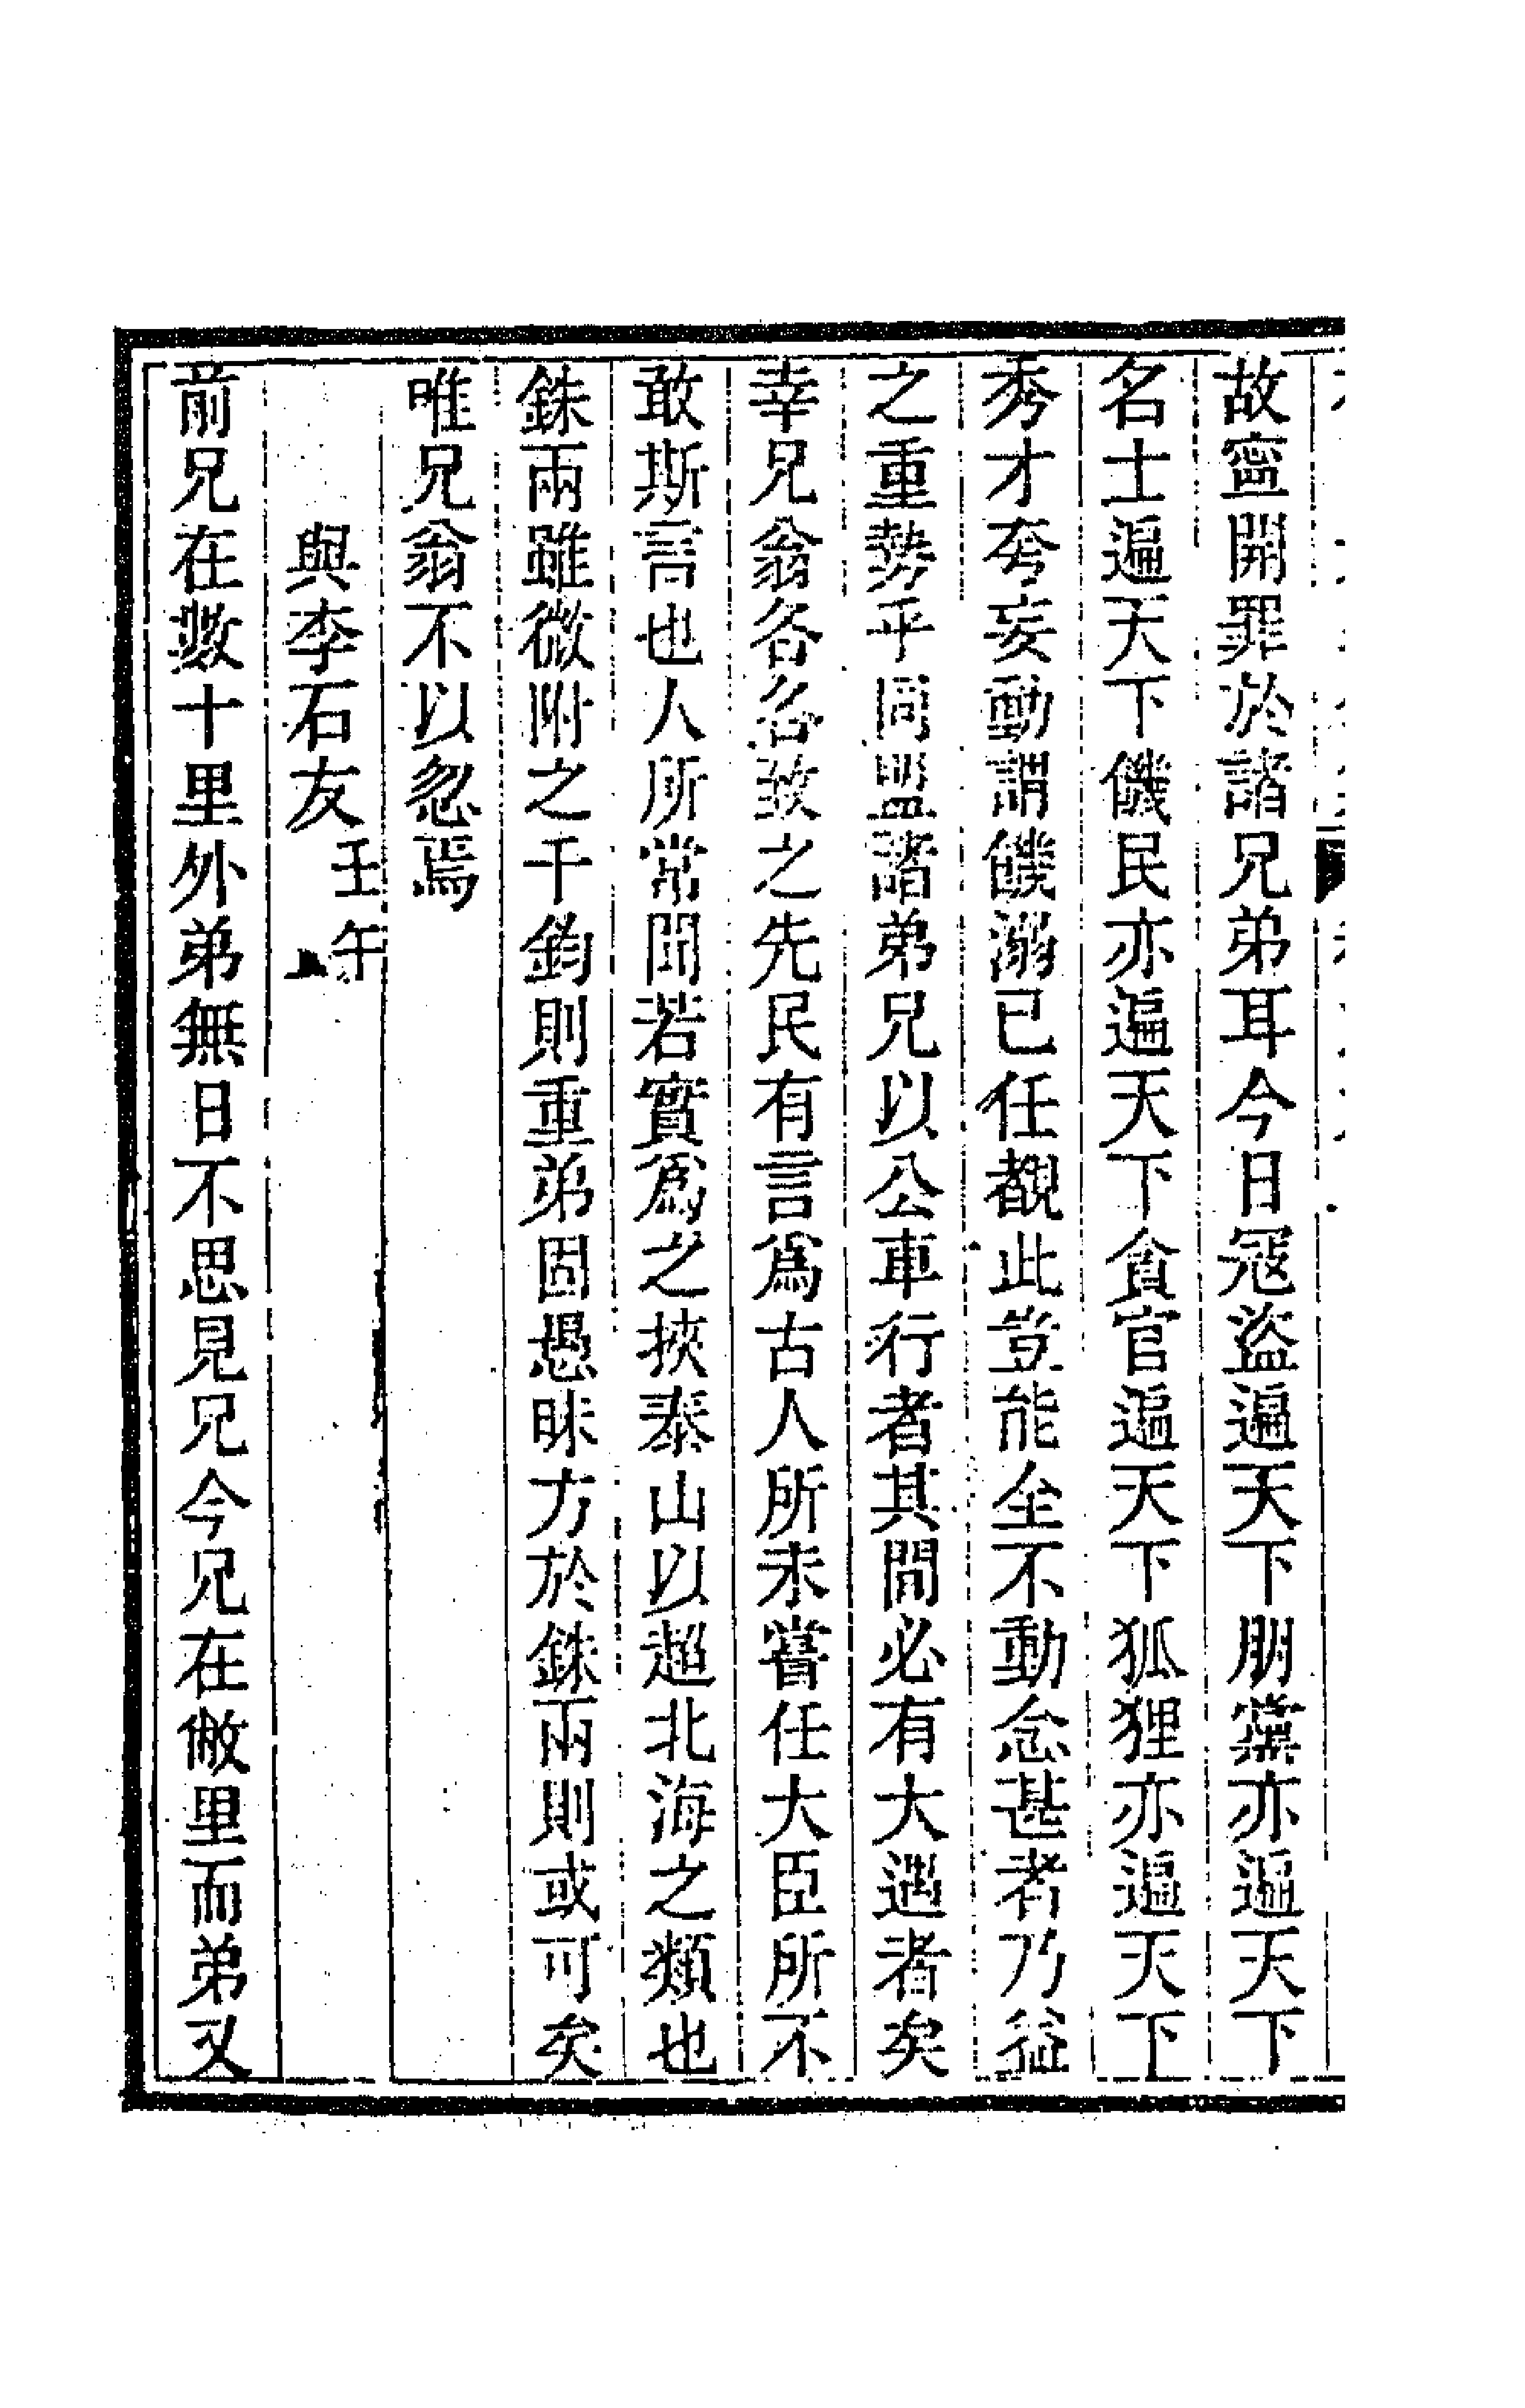 故寍開罪於諸兄弟耳今日冦盜遍天下朋黨亦遍天下
名士遍天下饑民亦遍天下貪官遍天下狐狸亦遍天下
秀才夸妄動謂饑溺已任覩此豈能全不動念甚者乃益
之重勢乎同盟諸弟兄以公車行者其間必有大遇者矣
幸兄翁各各致之先民有言爲古人所未嘗任大臣所不
敢斯言也人所常聞若實爲之挾泰山以超北海之類也
銖兩雖微附之千鈞則重弟固愚昧方於銖兩則或可矣
唯兄翁不以忽焉
與李石友壬午
前兄在數十里外弟無日不思見兄今兄在敝里而弟又